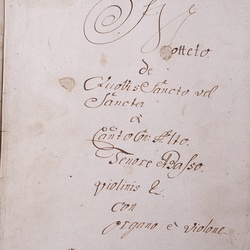 Motteto.
de
Quovis Sancto vel
Sancta
à
Canto Con Alto.
Tenore Basso.
violinis 2.
con
organo è violone.